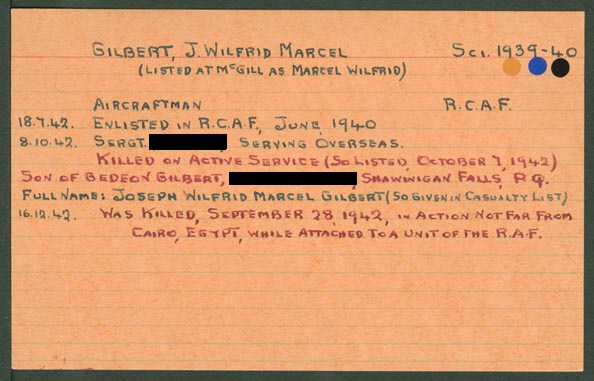 GILBERT, J. WILFRID MARCEL SCI. 1939-40
(LISTED AT McGILL AS MARCEL WILFRID)
AIRCRAFTMAN R.C.A.F.
18.7.42. ENLISTED IN R.C.A.F., JUNE 1940
8.10.42. SERGT. , SERVING OVERSEAS.
KILLED ON ACTIVE SERVICE (SO LISTED, OCTOBER 7, 1942)
SON OF BEDEON GILBERT, , SHAWINIGAN FALLS, P.Q.
FULL NAME: JOSEPH WILFRID MARCEL GILBERT (SO GIVEN IN CASUALTY LIST)
16.12.42. WAS KILLED, SEPTEMBER 28, 1942, IN ACTION NOT FAR FROM
CAIRO, EGYPT, WHILE ATTACHED TO A UNIT OF THE R.A.F.